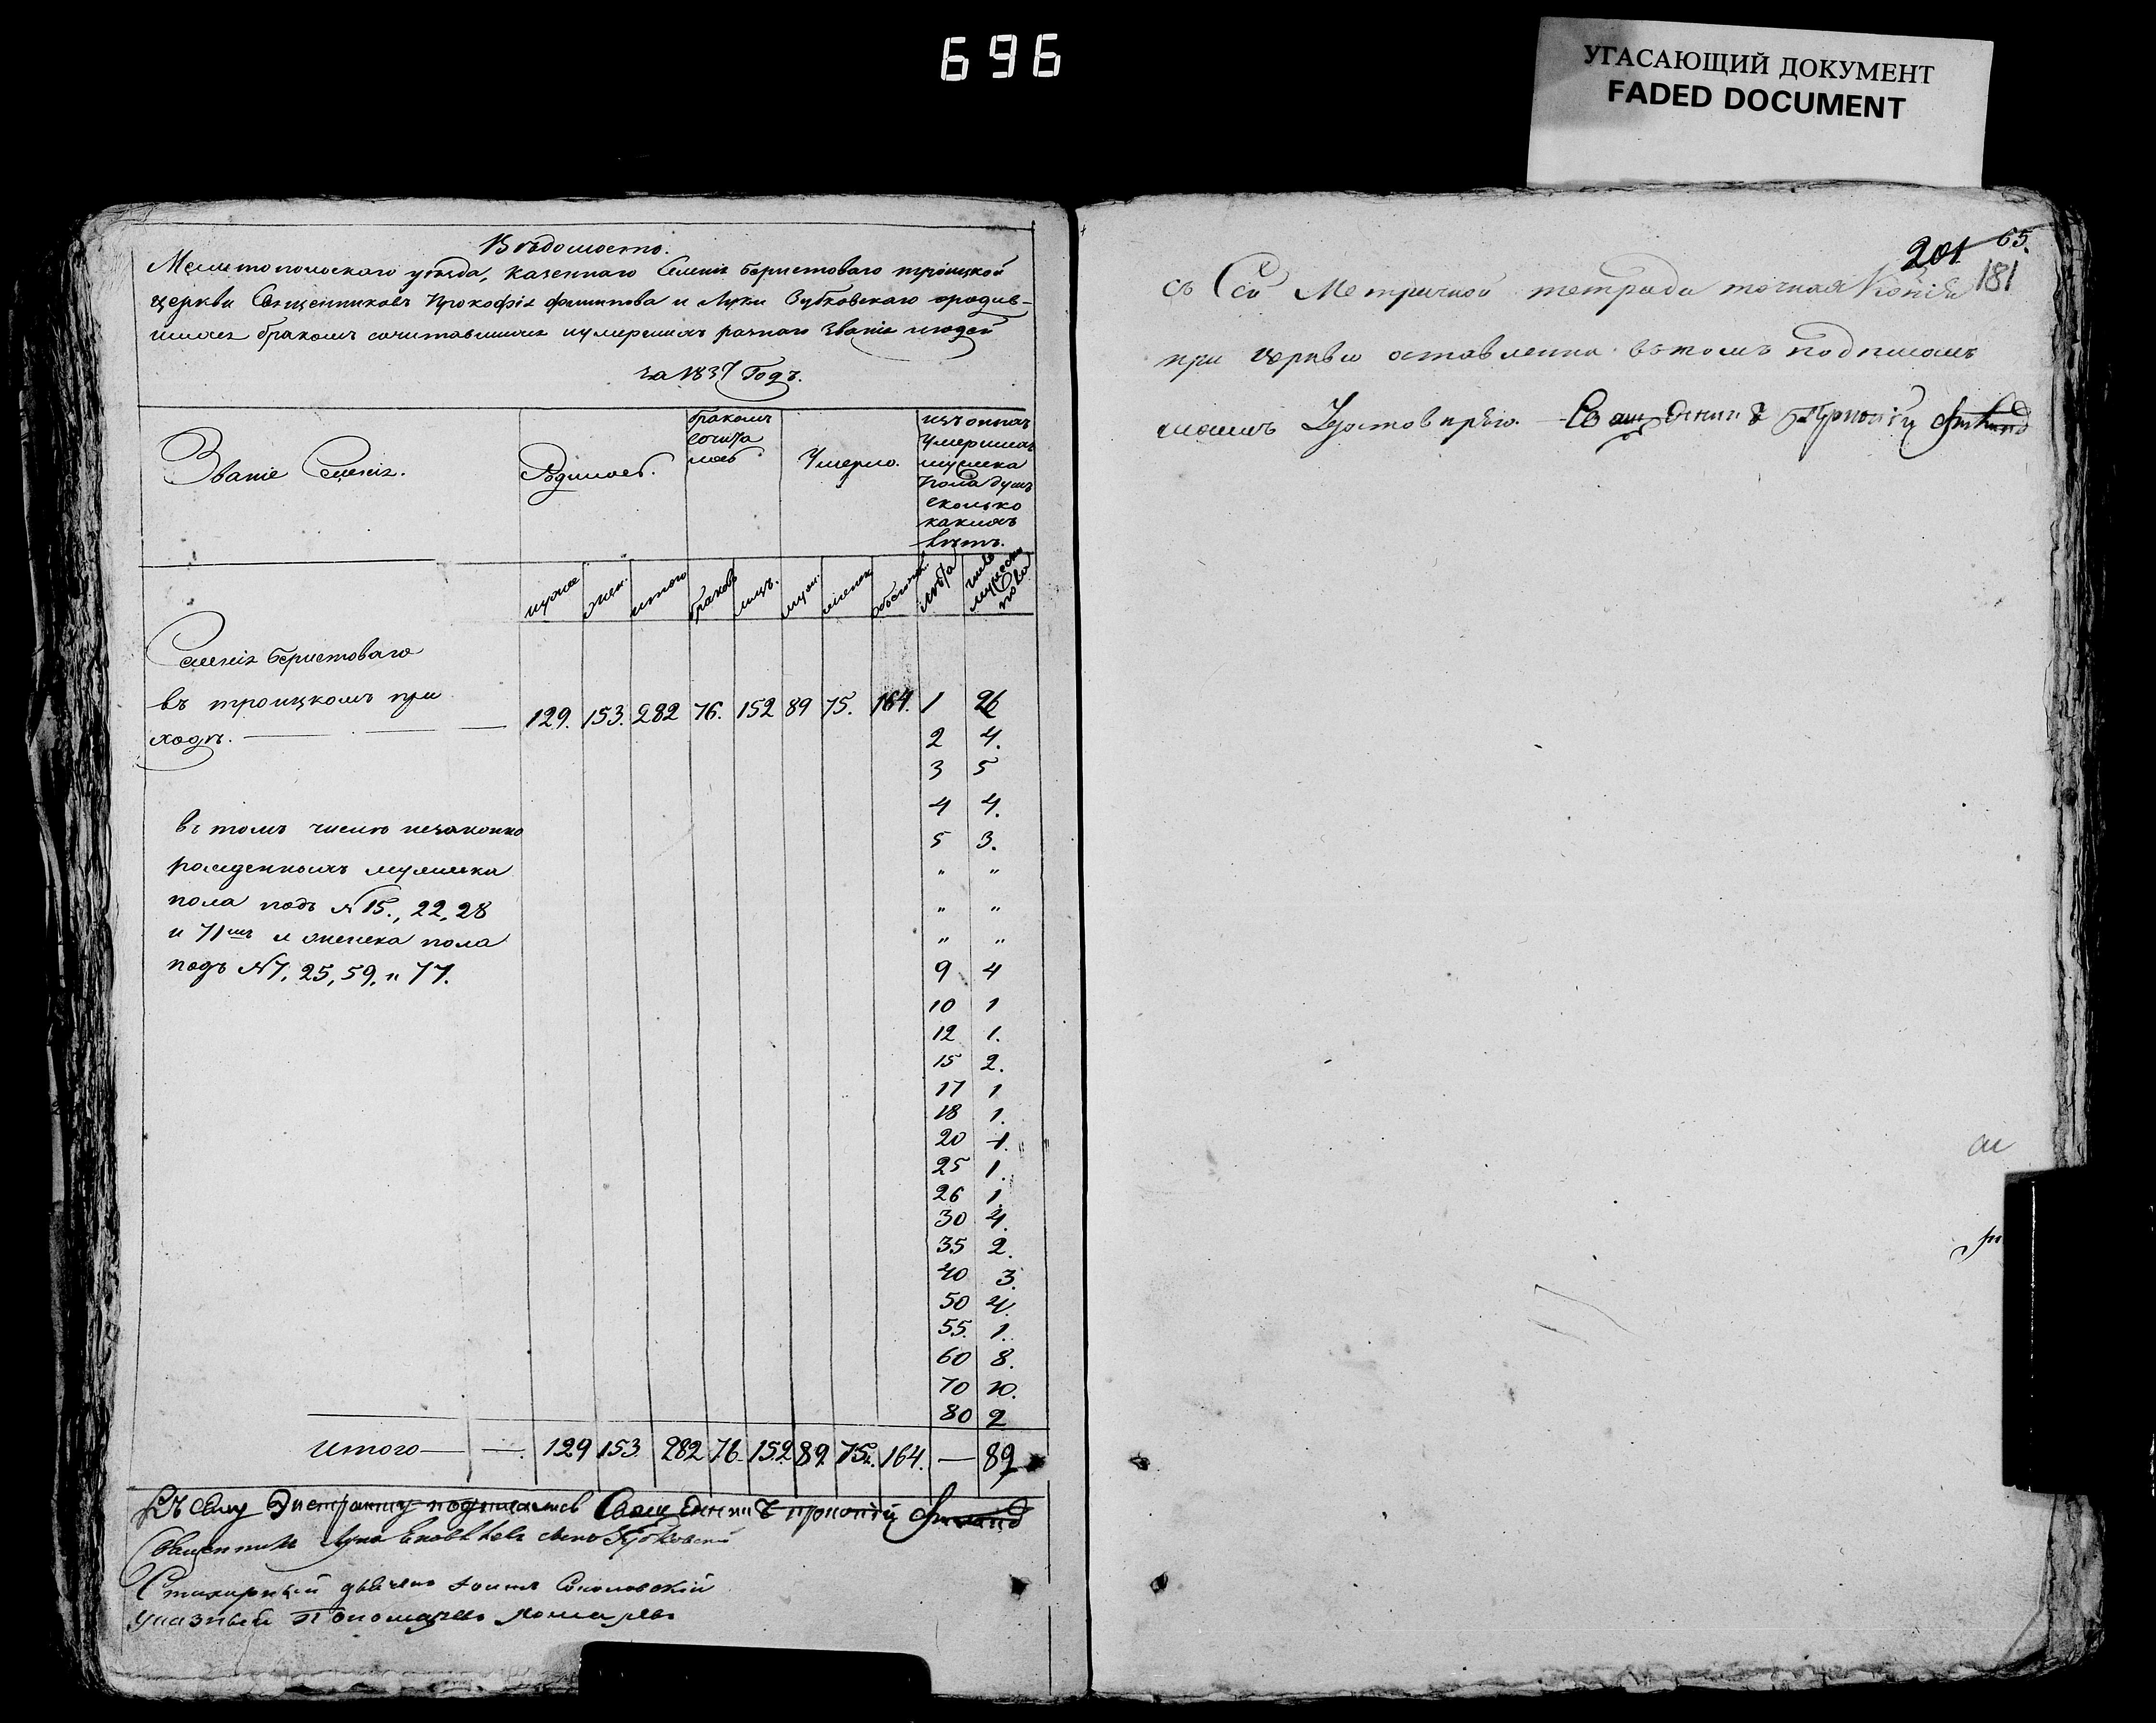 696
УГАСАЮЩИЙ ДОКУМЕНТ
FADED DOCUMENT
Вѣдомость.
Мелитопольскаго уѣзда, казеннаго Селенія Берестоваго троицкой
церкви Священниковъ Прокофія Филипова и Луки Зубковскаго ородив-
шихся бракомъ сочитавшихся иумершихъ разнаго званія людей
за 1837 Годъ.
Званіе Селенія.
Родилось.
бракомъ
сочита
лось
Умерло.
изъ оныхъ
Умершихъ
мужеска
Пола душъ
сколько
какихъ
лѣтъ.
муже жен. итого браковъ лицъ. муж. женск. обоего лѣта число мужеска пола
Селенія Берестоваго
въ троицкомъ при
ходѣ. 129. 153. 282 76. 152 89 75. 164. 1 26
2 4.
3 5
4 4.
5 3.
" "
" "
" "
9 4
10 1
12 1.
15 2.
17 1
18 1.
20 1.
25 1.
26 1.
30 4.
35 2.
40 3.
50 4.
55. 1.
60 8.
70 10.
80 2
въ томъ числѣ незаконно
рожденныхъ мужеска
пола подъ № 15., 22, 28
и 71мъ и женска пола
подъ № 7, 25, 59, и 77.
Итого — — 129 153. 282 76. 152 89. 75. 164. — 89
Къ сему Экстракту подписались Священникъ Прокопій
Священникъ Лука Зубковскій
Стихарный дьячекъ Соколовскій
Указный Пономарь
201 65.
181
съ Сей Метричной тетради точная Копія
при церкви оставленна вътомъ подписомъ
своимъ Удостовѣряю. Священникъ Прокопій